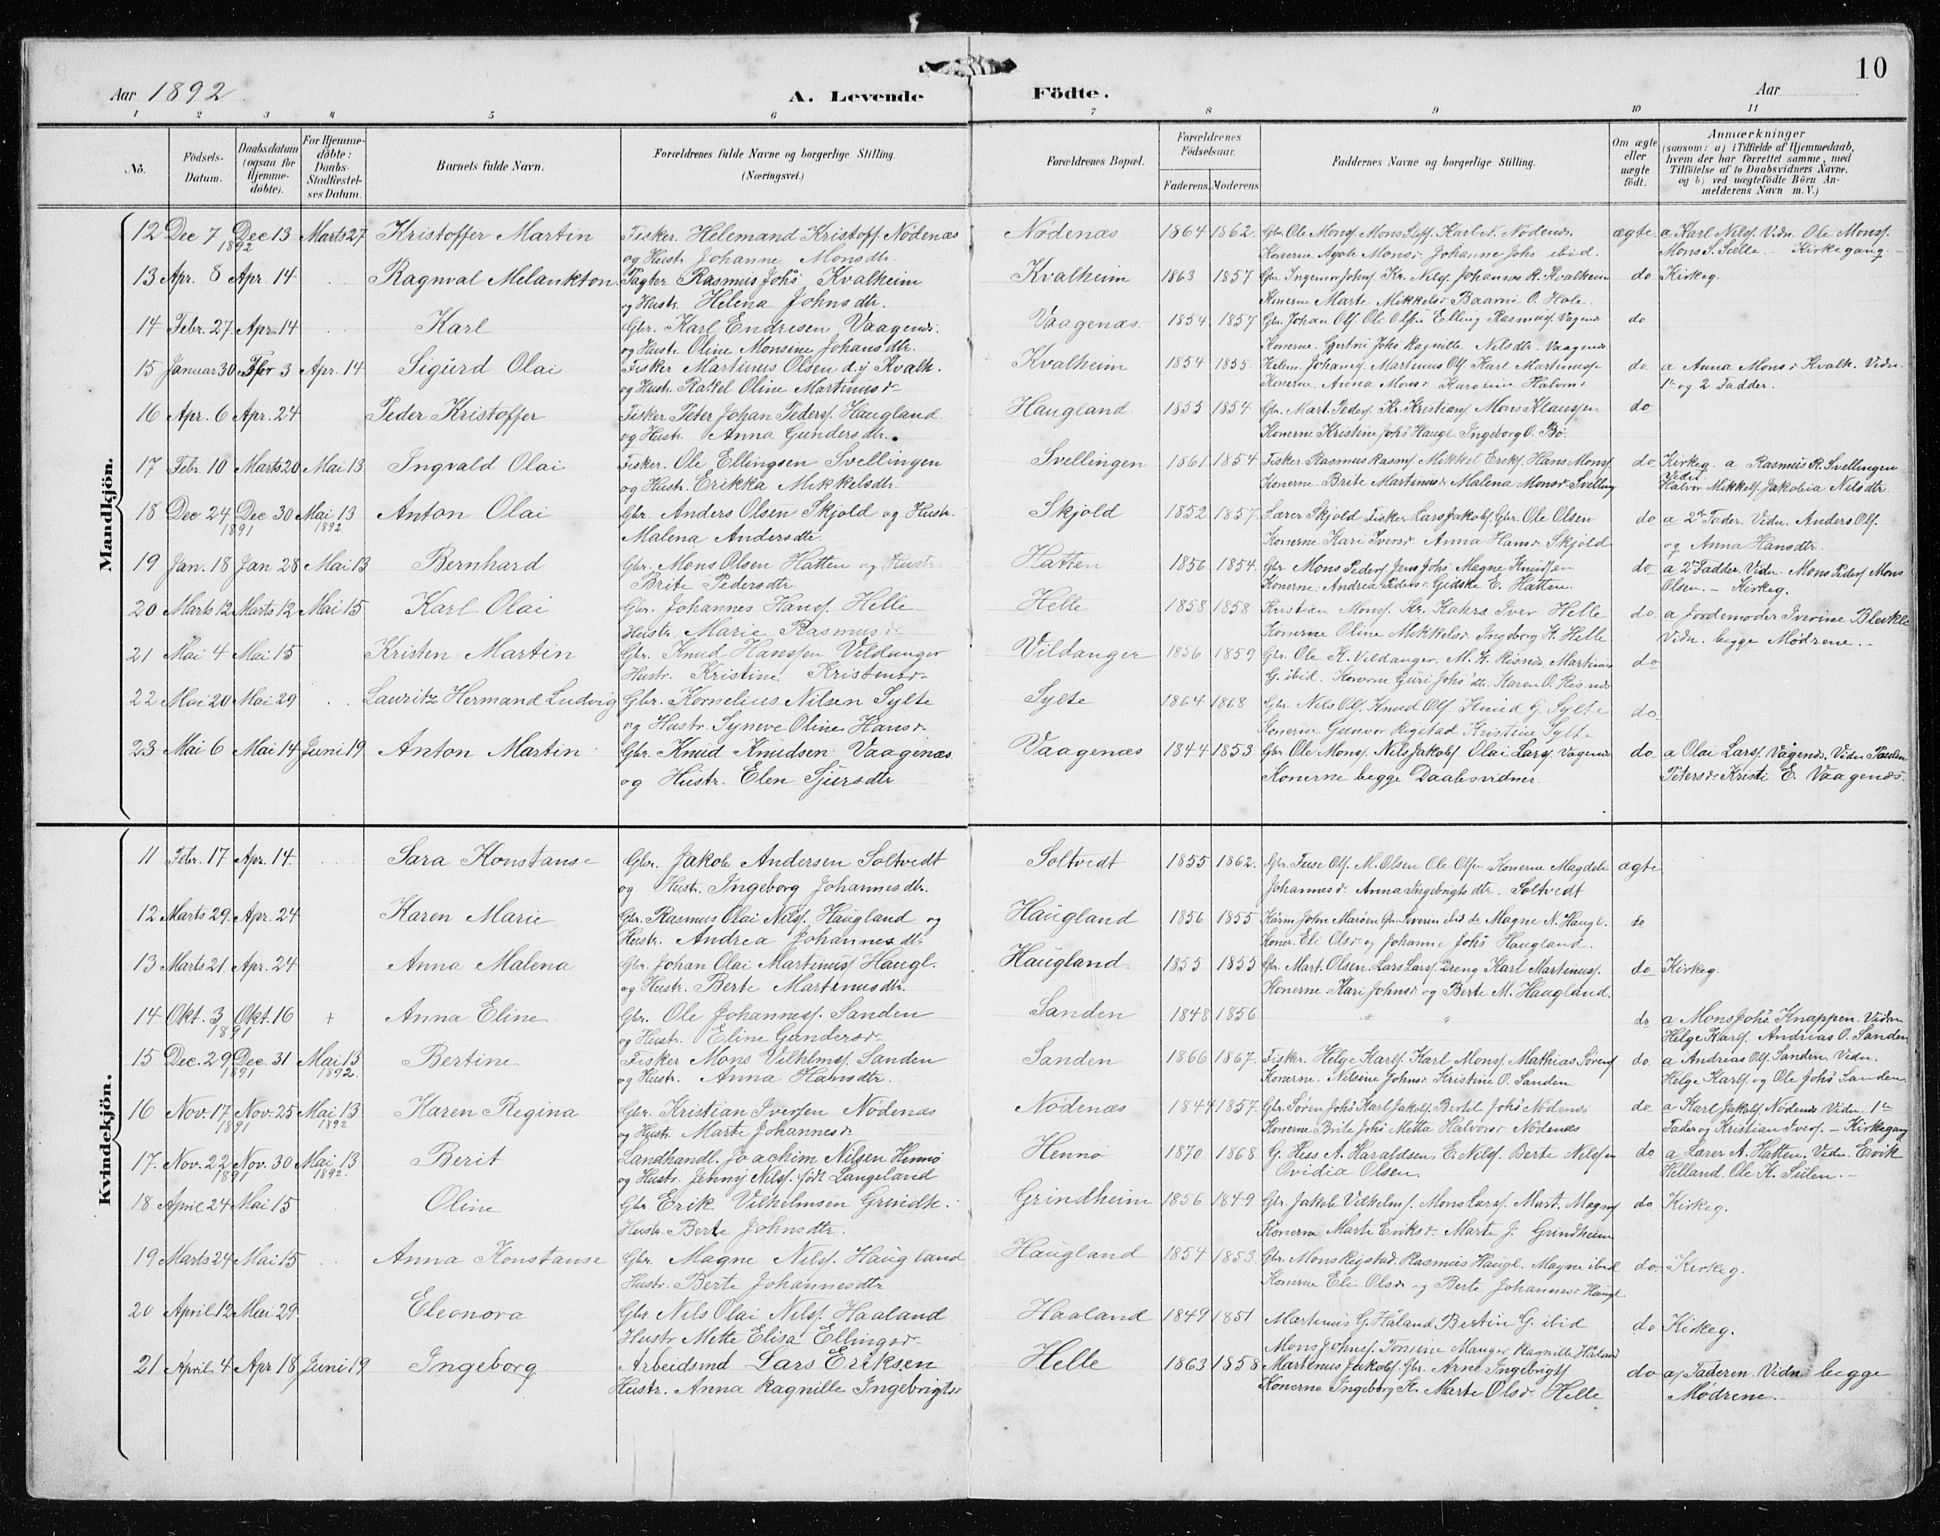 10
Aar 1892
A. Levende Födte.
Aar
1 2 3 4 5 6 7 8 9 10 11
No.
Födsels-Datum.
Daabsdatum (ogsaa for Hjemmedöbte).
For Hjemmedöbte: Daabs-Stadfæstelses Datum.
Barnets fulde Navn.
Forældrenes fulde Navne og borgerlige Stilling.
(Næringsvei.)
Forældrenes Bopæl.
Forældrenes Födselsaar.
Faderens. Moderens.
Faddernes Navne og borgerlige Stilling.
Om ægte eller uægte födt.
Anmærkninger
(saasom: a) i Tilfælde af Hjemmedaab, hvem der har forrettet samme, med Tilföielse af to Daabsvidners Navne, og b) ved uægtefödte Börn Anmelderens Navn m. V.)
Mandkjön.
12 Dec 7 Dec 13 Marts 27 Kristoffer Martin Fisker. Helemand Kristoff. Nödenæs Nödenæs 1864 1862 Gbr Ole Monss. Mons Karl N. Nödenæs ægte a Karl Nilss. Vidn. Ole Monss.
1892 og Hustr. Johanne Monsdtr. Konerne Agate Monsdr Johanne Johs ibid. Mons S. Kirkegang
13 Apr. 8 Apr. 14 Ragnval Melankton Pagter Rasmus Johs Kvalheim Kvalheim 1863 1857 Gbr. Ingemor Johnss. Kr. Nilss. Johannes R. Kvalheim do Kirkeg.
og Hustr. Helena Johnsdtr. Konerne Marte Mikkelsdr O. Hole
14 Febr. 27 Apr. 14 Karl Gbr. Karl Endresen Vaagenæs. Vaagenæs. 1854 1857 Gbr. Johan Olss. Ole Olsen Elling Rasmuss. Vagenæs do
og Hustr Oline Monsine Johansdtr. Konerne Gjertni Johs Ragnille Nilsdtr. Vaagenæs
15 Januar 30 Febr 3 Apr. 14 Sigurd Olai Fisker Martinus Olsen d.y Kvalh. Kvalheim 1854 1855 Helem. Johanss. Martinus Olss. Karl Martinuss. do a Anna Monsdr Kvalh. Vidn.
og Hustr. Rakel Oline Martinusdr Konerne. Anna Monsdr Karoline Halvorsdr 1te og 2 Fadder.
16 Apr. 6 Apr. 24 Peder Kristoffer Fisker Peter Johan Pederss. Haugland Haugland 1855 1854 Gbr. Mart. Pederss Kr. Kristianss Mons Klaussen do
og Hustr. Anna Gundersdtr. Konerne Kristine Johs Haugl Ingeborg O. Bö.
17 Febr. 10 Marts 20 Mai 13 Ingvald Olai Fisker. Ole Ellingsen Svellingen Svellingen 1861 1854 Fisker Rasmus Rasms Mikkel Erikss. Hans Monss do Kirkeg. a Rasmus R. Svellingen
og Hustr. Erikka Mikkelsdtr. Konerne Brite Martinusdr Malena Monsdr Svelling Vidn. Halvor Mikkelss. Jakobia Nilsdtr.
18 Dec 24 Dec 30 Mai 13 Anton Olai Gbr. Anders Olsen Skjold og Hustr. Skjold 1852 1857 Lærer Skjold Fisker Lars Jakobss. Gbr. Ole Olsen do a 2 Fader. Vidn. Anders Olss.
1891 1892 Malena Andersdtr. Konerne Kari Iversdr Anna Hansdr Skjold og Anna Hansdtr.
19 Jan. 18 Jan 28 Mai 13 Bernhard Gbr. Mons Olsen Hatten og Hustr. Hatten 1856 1854 Gbr Mons Pederss Jens Johs Magne Knudsen do a 2 Fadder. Vidn. Mons Pederss Mons
Brite Pedersdtr. Konerne. Andrea Pedersdr Gidske E. Hatten Olsen. – Kirkeg.
20 Marts 12 Marts 12 Mai 15 Karl Olai Gbr. Johannes Hanss. Helle Helle 1858 1858 Kristian Monss. Kr. Kahrs Iver Helle do a Jordemoder Severine Bleikle
Hustr. Marie Rasmusdr Konerne Oline Mikkelsdr Ingeborg K. Helle Vidn. begge Mödrene.
21 Mai 4 Mai 15 Kristen Martin Gbr. Knud Hanssen Vildanger Vildanger 1856 1859 Gbr. Ole K. Vildanger. M. K. Risnes Martinus do
Hustr. Kristine Kristensdr G. ibid. Konerne Guri Johsdtr Karen O. Risnes
22 Mai 20 Mai 29 Lauritz Hermand Ludvig Gbr. Kornelius Nilsen Sylte Sylte 1864 1868 Gbr. Nils Olss. Knud Olss Knud G. Sylte do
og Hustr. Synneve Oline Hansdr Konerne Gunvor Rigstad Kristine Sylte
23 Mai 6 Mai 14 Juni 19 Anton Martin Gbr. Knud Knudsen Vaagenæs Vaagenæs 1844 1853 Gbr Ole Monss. Nils Jakobss Olai Larss. Vagenæs do a Olai Larss. Vågenæs. Vidn
og Hustr. Elen Sjursdtr Konerne begge Daabsvidner Petersdr Kristi E. Vaagenæs.
Kvindekjön.
11 Febr. 17 Apr. 14 Sara Konstanse Gbr. Jakob Andersen Soltvedt Soltvedt 1855 1862 Gbr. Olss. M. Olsen Ole Olsen Konerne Magdele ægte
og Hustr. Ingeborg Johannesdtr. Johannesdr Anna Ingebrigtsdtr. Soltvedt
12 Marts 29 Apr. 24 Karen Marie Gbr. Rasmus Olai Nilss. Haugland og Haugland 1856 1855 Severin ibid Magne N. Haugl. do
Hustr. Andrea Johannesdtr Koner. Eli Olsdr og Johanne Johs Haugland.
13 Marts 21 Apr. 24 Anna Malena Gbr. Johan Olai Martinuss. Haugl. Haugland 1855 1855 Gbr. Mart. Olsen. Lars Larss. Dreng Karl Martinuss. do Kirkeg.
og Hustr. Berte Martinusdtr. Konerne Kari Johnsdr og Berte M. Haugland.
14 Okt. 3 Okt. 16 + Anna Eline Gbr. Ole Johanness. Sanden Sanden 1848 1856 " " do a Mons Johs. Knappen. Vidn
1891 og Hustr. Eline Gundersdr Helge Karlss. Andreas O. Sanden
15 Dec. 29 Dec. 31 Mai 13 Bertine Fisker Mons Vilhelmss. Sanden Sanden 1866 1867 Fisker. Helge Karlss. Karl Monss. Mathias Sörenss do a Andreas Olss Sanden Vidn.
1891 1892. og Hustr. Anna Hansdtr. Konerne. Nilsine Johnsdr Kristine O. Sanden. Helge Karlss. og Ole Johs Sanden
16 Nov. 17 Nov. 25 Mai 13 Karen Regina Gbr. Kristian Iversen Nödenæs Nödenæs 1844 1857 Gbr. Sören Johs Karl Jakobss. Bertel Johs Nödenæs do a Karl Jakobss. Nödenæs Vidn. 1te
1891 1892 og Hustr. Marte Johannesdr Konerne Brite Johs Metta Halvorsdr Nödenæs Fader og Kristian Iverss. – Kirkegang
17. Nov. 22 Nov. 30 Mai 13 Berit Landhandl. Joachim Nilsen Hennö Hennö 1870 1868 G. Hiss A. Haraldsen E. Nilss. Berte Nilssen do a Lærer A. Hatten. Vidn. Erik
1891 1892. og Hustr. Jenny Nilss. födt Langeland Ovidia Olsen Helland Ole K. Sulen.
18 April 24 Mai 15 Oline Gbr Erik Vilhelmsen Grindh. Grindheim 1856 1849 Gbr Jakob Vilhelmss. Mons Larss. Mart. Magnss do Kirkeg.
Hustr Berte Johnsdtr. Konerne Marte Eriksdr Marte J. Grindheim
19 Marts 24 Mai 15 Anna Konstanse Gbr. Magne Nilss. Haugland Haugland 1854 1853 Gbr. Mons Rigstad Rasmus Haugl. Magne ibid do Kirkeg.
Hustr. Berte Johannesdtr Konerne Eli Olsdr og Berte Johannesdr Haugl
20 April 12 Mai 29 Eleonora Gbr Nils Olai Nilss. Haaland Haaland 1849 1851 Martinus G. Håland Bertin G. ibid do Kirkeg.
Hustr Mette Elisa Ellingsdr Mons Johnss. Manger Ragnille Håland
21 April 4 Apr 18 Juni 19 Ingeborg Arbeidsmd Lars Eriksen Helle 1863 1858 Martinus Jakobss. Gbr. Arne Ingebrigtss do a Faderen. Vidn. begge
Hustr. Anna Ragnille Ingebrigtsdr Konerne Ingeborg K. Marte Olsdr Helle Mödrene.